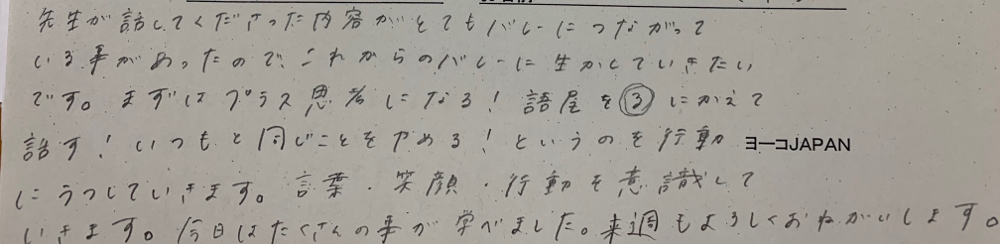 先生が話してくださった内容がとてもバレーにつながって
いる事があったので、これからのバレーに生かしていきたい
です。まずはプラス思考になる！語尾を③にかえて
話す！いつもと同じことをやめる！というのを行動 ヨーコJAPAN
にうつしていきます。言葉・笑顔・行動を意識して
いきます。今日はたくさんの事が学べました。来週もよろしくおねがいします。